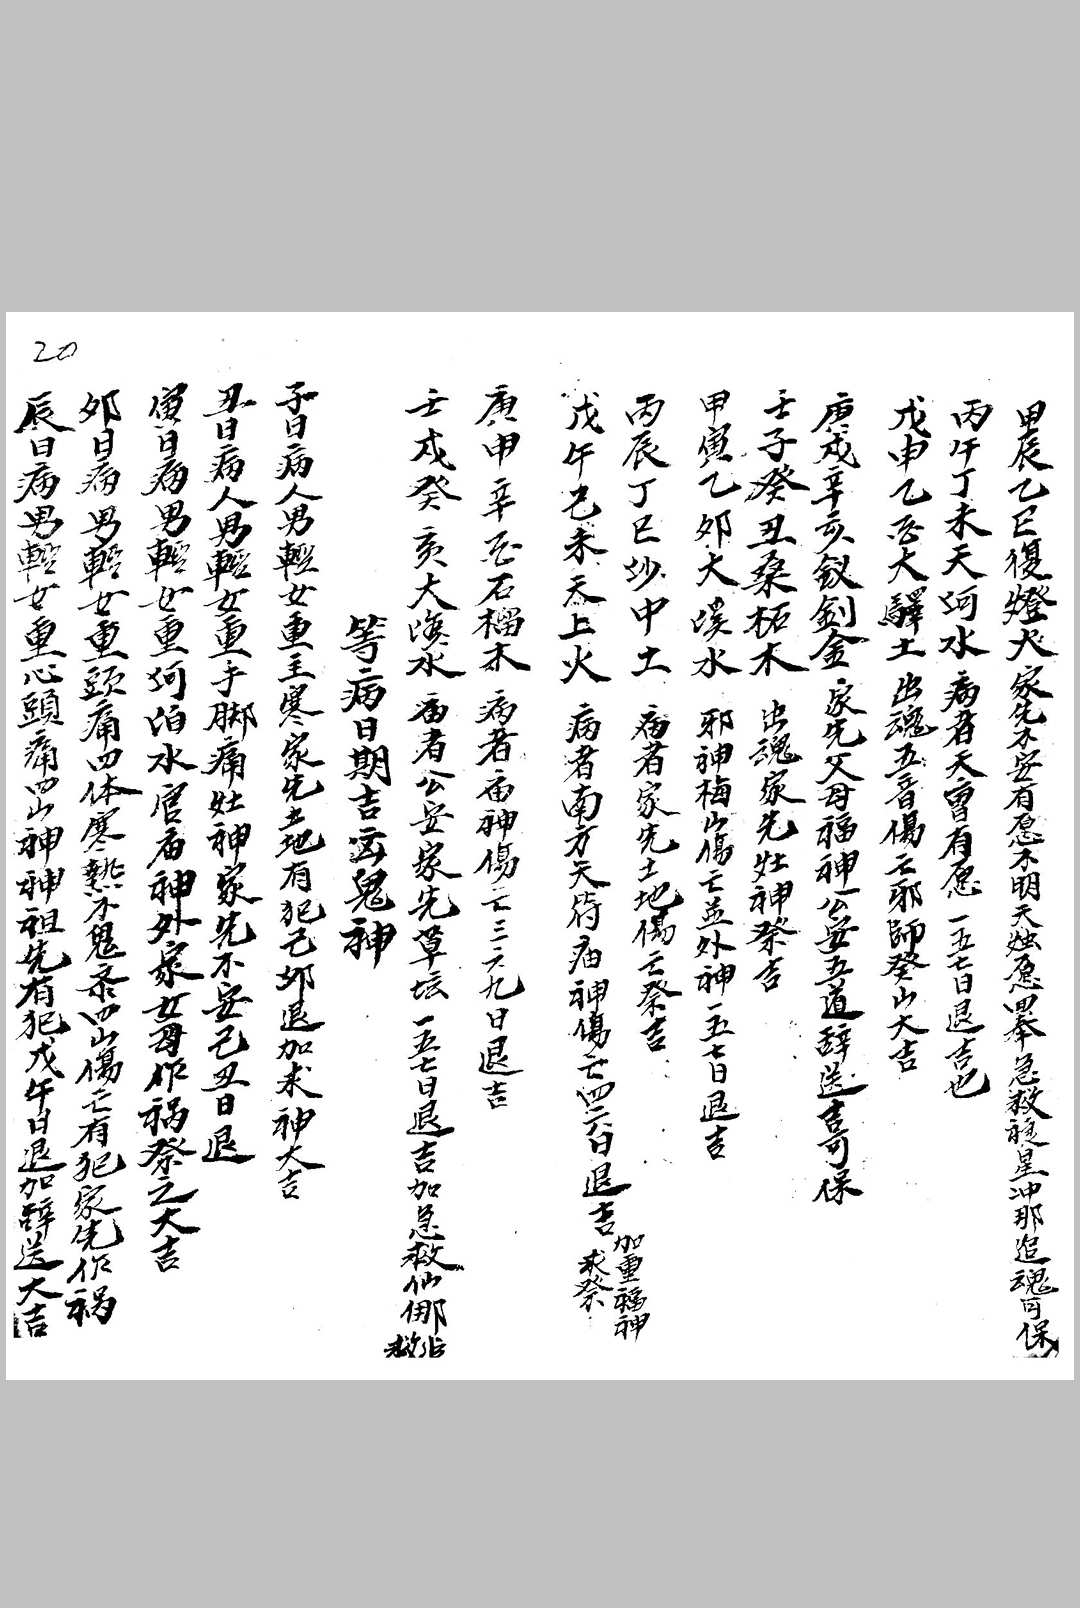 20
甲辰乙巳復燈火 家先不安有愿不明天燭愿四奉急救祿星冲那追魂可保
丙午丁未天河水 病者天曹有愿一五七日退吉也
戊申乙酉大驛土 出魂五音傷亡邪師癸山大吉
庚戌辛亥釵釧金 家先父母福神公安五道辞送吉可保
壬子癸丑桑柘木 出魂家先灶神祭吉
甲寅乙卯大溪水 邪神梅山傷亡並外神一五七日退吉
丙辰丁巳沙中土 病者家先土地傷亡祭吉
戊午己未天上火 病者南方天符庙神傷亡四六日退吉 加重福神求祭
庚申辛酉石榴木 病者庙神傷亡三六九日退吉
壬戌癸亥大海水 病者公安家先草坛一五七日退吉加急救仙
等病日期吉凶鬼神
子日病人男輕女重主寒家先土地有犯己卯退加求神大吉
丑日病人男輕女重手脚痛灶神家先不安己丑日退
寅日病男輕女重河泊水官庙神外家女母作祸祭之大吉
卯日病男輕女重頭痛四体寒熱不鬼柰四山傷亡有犯家先作祸
辰日病男輕女重心頭痛四山神神祖先有犯戊午日退加辞送大吉